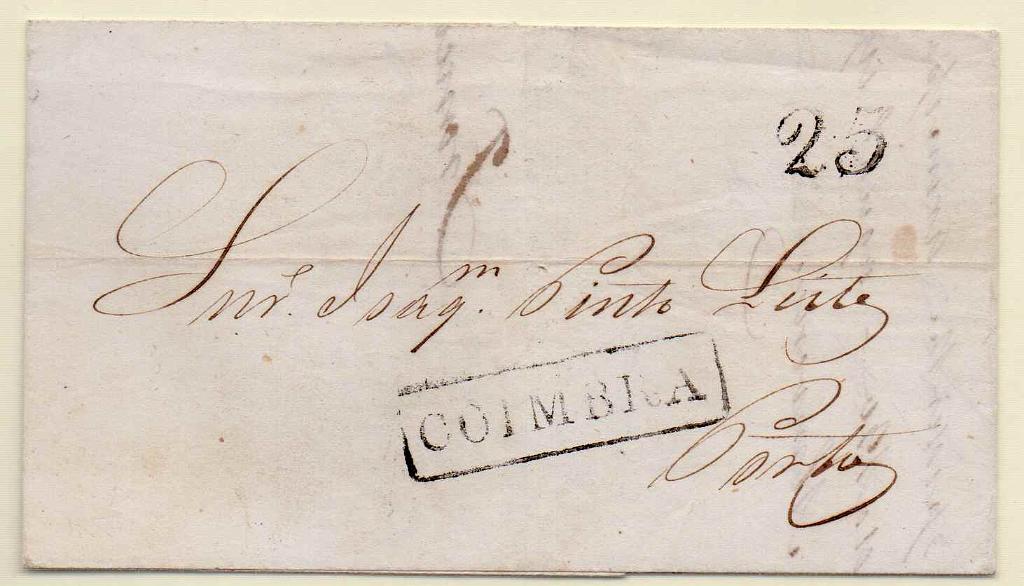 25
Snr.e Joaq.m Pinto Leite
COIMBRA
Porto